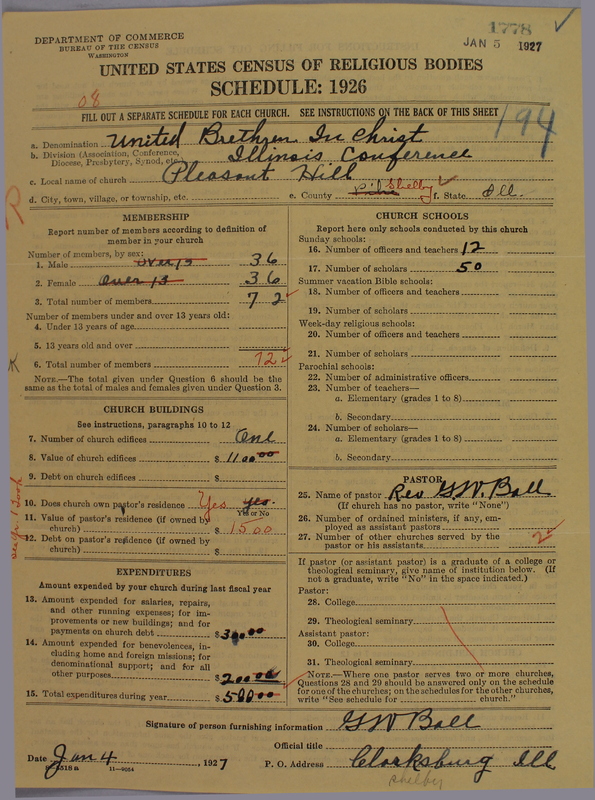 1778
DEPARTMENT OF COMMERCE
BUREAU OF THE CENSUS
WASHINGTON
JAN 5 1927
UNITED STATES CENSUS OF RELIGIOUS BODIES
SCHEDULE: 1926
08
FILL OUT A SEPARATE SCHEDULE FOR EACH CHURCH. SEE INSTRUCTIONS ON THE BACK OF THIS SHEET
194
a. Denomination United Brethren In Christ
b. Division (Association, Conference, Diocese, Presbytery, Synod, etc. Illinois Conference
c. Local name of church Pleasant Hill
d. City, town, village, or township, etc. e. County Shelby f. State Ill.
MEMBERSHIP
Report number of members according to definition of member in your church
Number of members, by sex:
1. Male over 13 36
2. Female over 13 36
3. Total number of members 72
Number of members under and over 13 years old:
4. Under 13 years of age
5. 13 years old and over
6. Total number of members 72
NOTE.—The total given under Question 6 should be the
same as the total of males and females given under Question 3.
CHURCH BUILDINGS
See instructions, paragraphs 10 to 12
7. Number of church edifices One
8. Value of church edifices $ 1100.00
9. Debt on church edifices $
10. Does church own pastor's residence Yes yes.
Yes or No
11. Value of pastor's residence (if owned by
church) $ 1500
12. Debt on pastor's residence (if owned by
church) $
EXPENDITURES
Amount expended by your church during last fiscal year
13. Amount expended for salaries, repairs,
and other running expenses; for im-
provements or new buildings; and for
payments on church debt $ 300.00
14. Amount expended for benevolences, in-
cluding home and foreign missions; for
denominational support; and for all
other purposes $ 200.00
15. Total expenditures during year $ 500.00
CHURCH SCHOOLS
Report here only schools conducted by this church
Sunday schools:
16. Number of officers and teachers 12
17. Number of scholars 50
Summer vacation Bible schools:
18. Number of officers and teachers
19. Number of scholars
Week-day religious schools:
20. Number of officers and teachers
21. Number of scholars
Parochial schools:
22. Number of administrative officers
23. Number of teachers—
a. Elementary (grades 1 to 8)
b. Secondary
24. Number of scholars—
a. Elementary (grades 1 to 8)
b. Secondary
PASTOR
25. Name of pastor Rev G.W. Ball
(If church has no pastor, write "None")
26. Number of ordained ministers, if any, em-
ployed as assistant pastors
27. Number of other churches served by the
pastor or his assistants 2
If pastor (or assistant pastor) is a graduate of a college or
theological seminary, give name of institution below. (If
not a graduate, write "No" in the space indicated.)
Pastor:
28. College
29. Theological seminary
Assistant pastor:
30. College
31. Theological seminary
NOTE.—Where one pastor serves two or more churches,
Questions 28 and 29 should be answered only on the schedule
for one of the churches; on the schedules for the other churches,
write "See schedule for church."
Signature of person furnishing information GW Ball
Official title
Date Jan 4 1927 P. O. Address Clarksburg Ill
Shelby
11—9054